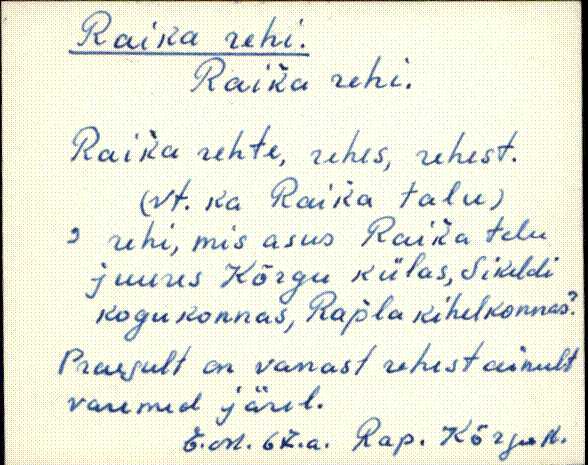 Raika rehi.
Raiǩa rehi.
Raiǩa rehte, rehes, rehest.
(vt. ka Raiǩa talu)
ˀ rehi, mis asus Raiǩa talu
juures Kõrgu külas, Sikeldi
kogukonnas, Rapla kihelkonnas.
Praegult on vanast rehest ainult
varemed järel.
67.a. Rap. Kõrgu k.